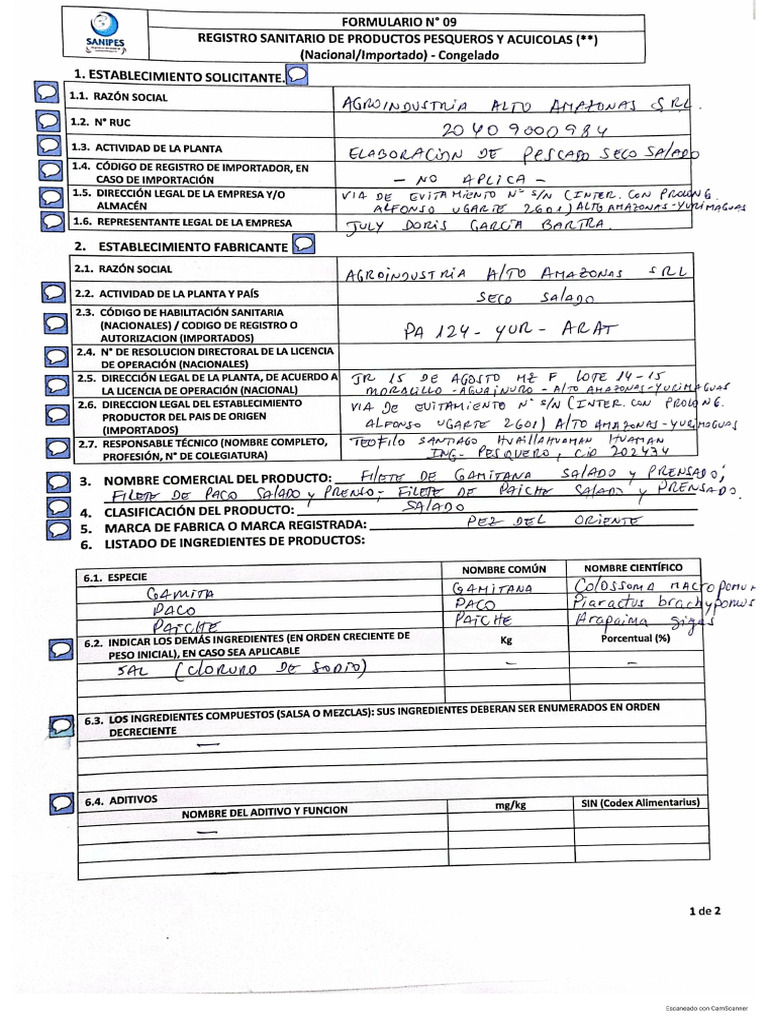 SANIPES
FORMULARIO N° 09
REGISTRO SANITARIO DE PRODUCTOS PESQUEROS Y ACUICOLAS (**)
(Nacional/Importado) - Congelado
1. ESTABLECIMIENTO SOLICITANTE.
1.1. RAZÓN SOCIAL AGROINDUSTRIA ALTO AMAZONAS SRL.
1.2. N° RUC 20409000984
1.3. ACTIVIDAD DE LA PLANTA ELABORACION DE PESCADO SECO SALADO
1.4. CÓDIGO DE REGISTRO DE IMPORTADOR, EN
CASO DE IMPORTACIÓN - NO APLICA -
1.5. DIRECCIÓN LEGAL DE LA EMPRESA Y/O VIA DE EVITAMIENTO N° S/N (INTER. CON PROLONG.
ALMACÉN ALFONSO UGARTE 2601) ALTO AMAZONAS-YURIMAGUAS
1.6. REPRESENTANTE LEGAL DE LA EMPRESA JULY DORIS GARCÍA BARTRA.
2. ESTABLECIMIENTO FABRICANTE
2.1. RAZÓN SOCIAL AGROINDUSTRIA AlTO AMAZONAS SRL
2.2. ACTIVIDAD DE LA PLANTA Y PAÍS SECO SALADO
2.3. CÓDIGO DE HABILITACIÓN SANITARIA
(NACIONALES) / CODIGO DE REGISTRO O
AUTORIZACION (IMPORTADOS) PA 124- YUR - ARAT
2.4. N° DE RESOLUCION DIRECTORAL DE LA LICENCIA
DE OPERACIÓN (NACIONAL)
2.5. DIRECCIÓN LEGAL DE LA PLANTA, DE ACUERDO A JR 15 DE AGOSTO MZ F LOTE 14-15
LA LICENCIA DE OPERACIÓN (NACIONAL) MORALILLO - AGUAJNURO - ALTO AMAZONAS-YURIMAGUAS
2.6. DIRECCION LEGAL DEL ESTABLECIMIENTO VIA DE EVITAMIENTO N° S/N (INTER. CON PROLONG.
PRODUCTOR DEL PAIS DE ORIGEN ALFONSO UGARTE 2601) ALTO AMAZONAS-YURIMAGUAS
(IMPORTADOS)
2.7. RESPONSABLE TÉCNICO (NOMBRE COMPLETO, TEOFILO SANTIAGO HUAILLAHUAMAN HUAMAN
PROFESIÓN, N° DE COLEGIATURA) ING- PESQUERO, CIP 202474
3. NOMBRE COMERCIAL DEL PRODUCTO: FILETE DE GAMITANA SALADO y PRENSADO;
FILETE DE PACO SALADO y PRENSO; FILETE DE PAICHE SALADO y PRENSADO.
4. CLASIFICACIÓN DEL PRODUCTO: SALADO
5. MARCA DE FABRICA O MARCA REGISTRADA: PEZ DEL ORIENTE
6. LISTADO DE INGREDIENTES DE PRODUCTOS:
6.1. ESPECIE NOMBRE COMÚN NOMBRE CIENTÍFICO
GAMITA GAMITANA Colossoma macropomum
PACO PACO Piaractus brachypomus
PAICHE PAICHE Arapaima gigas
6.2. INDICAR LOS DEMÁS INGREDIENTES (EN ORDEN CRECIENTE DE Kg Porcentual (%)
PESO INICIAL), EN CASO SEA APLICABLE
SAL (CLORURO DE SODIO) - -
6.3. LOS INGREDIENTES COMPUESTOS (SALSA O MEZCLAS): SUS INGREDIENTES DEBERAN SER ENUMERADOS EN ORDEN
DECRECIENTE
—
6.4. ADITIVOS
NOMBRE DEL ADITIVO Y FUNCION mg/kg SIN (Codex Alimentarius)
—
1 de 2
Escaneado con CamScanner